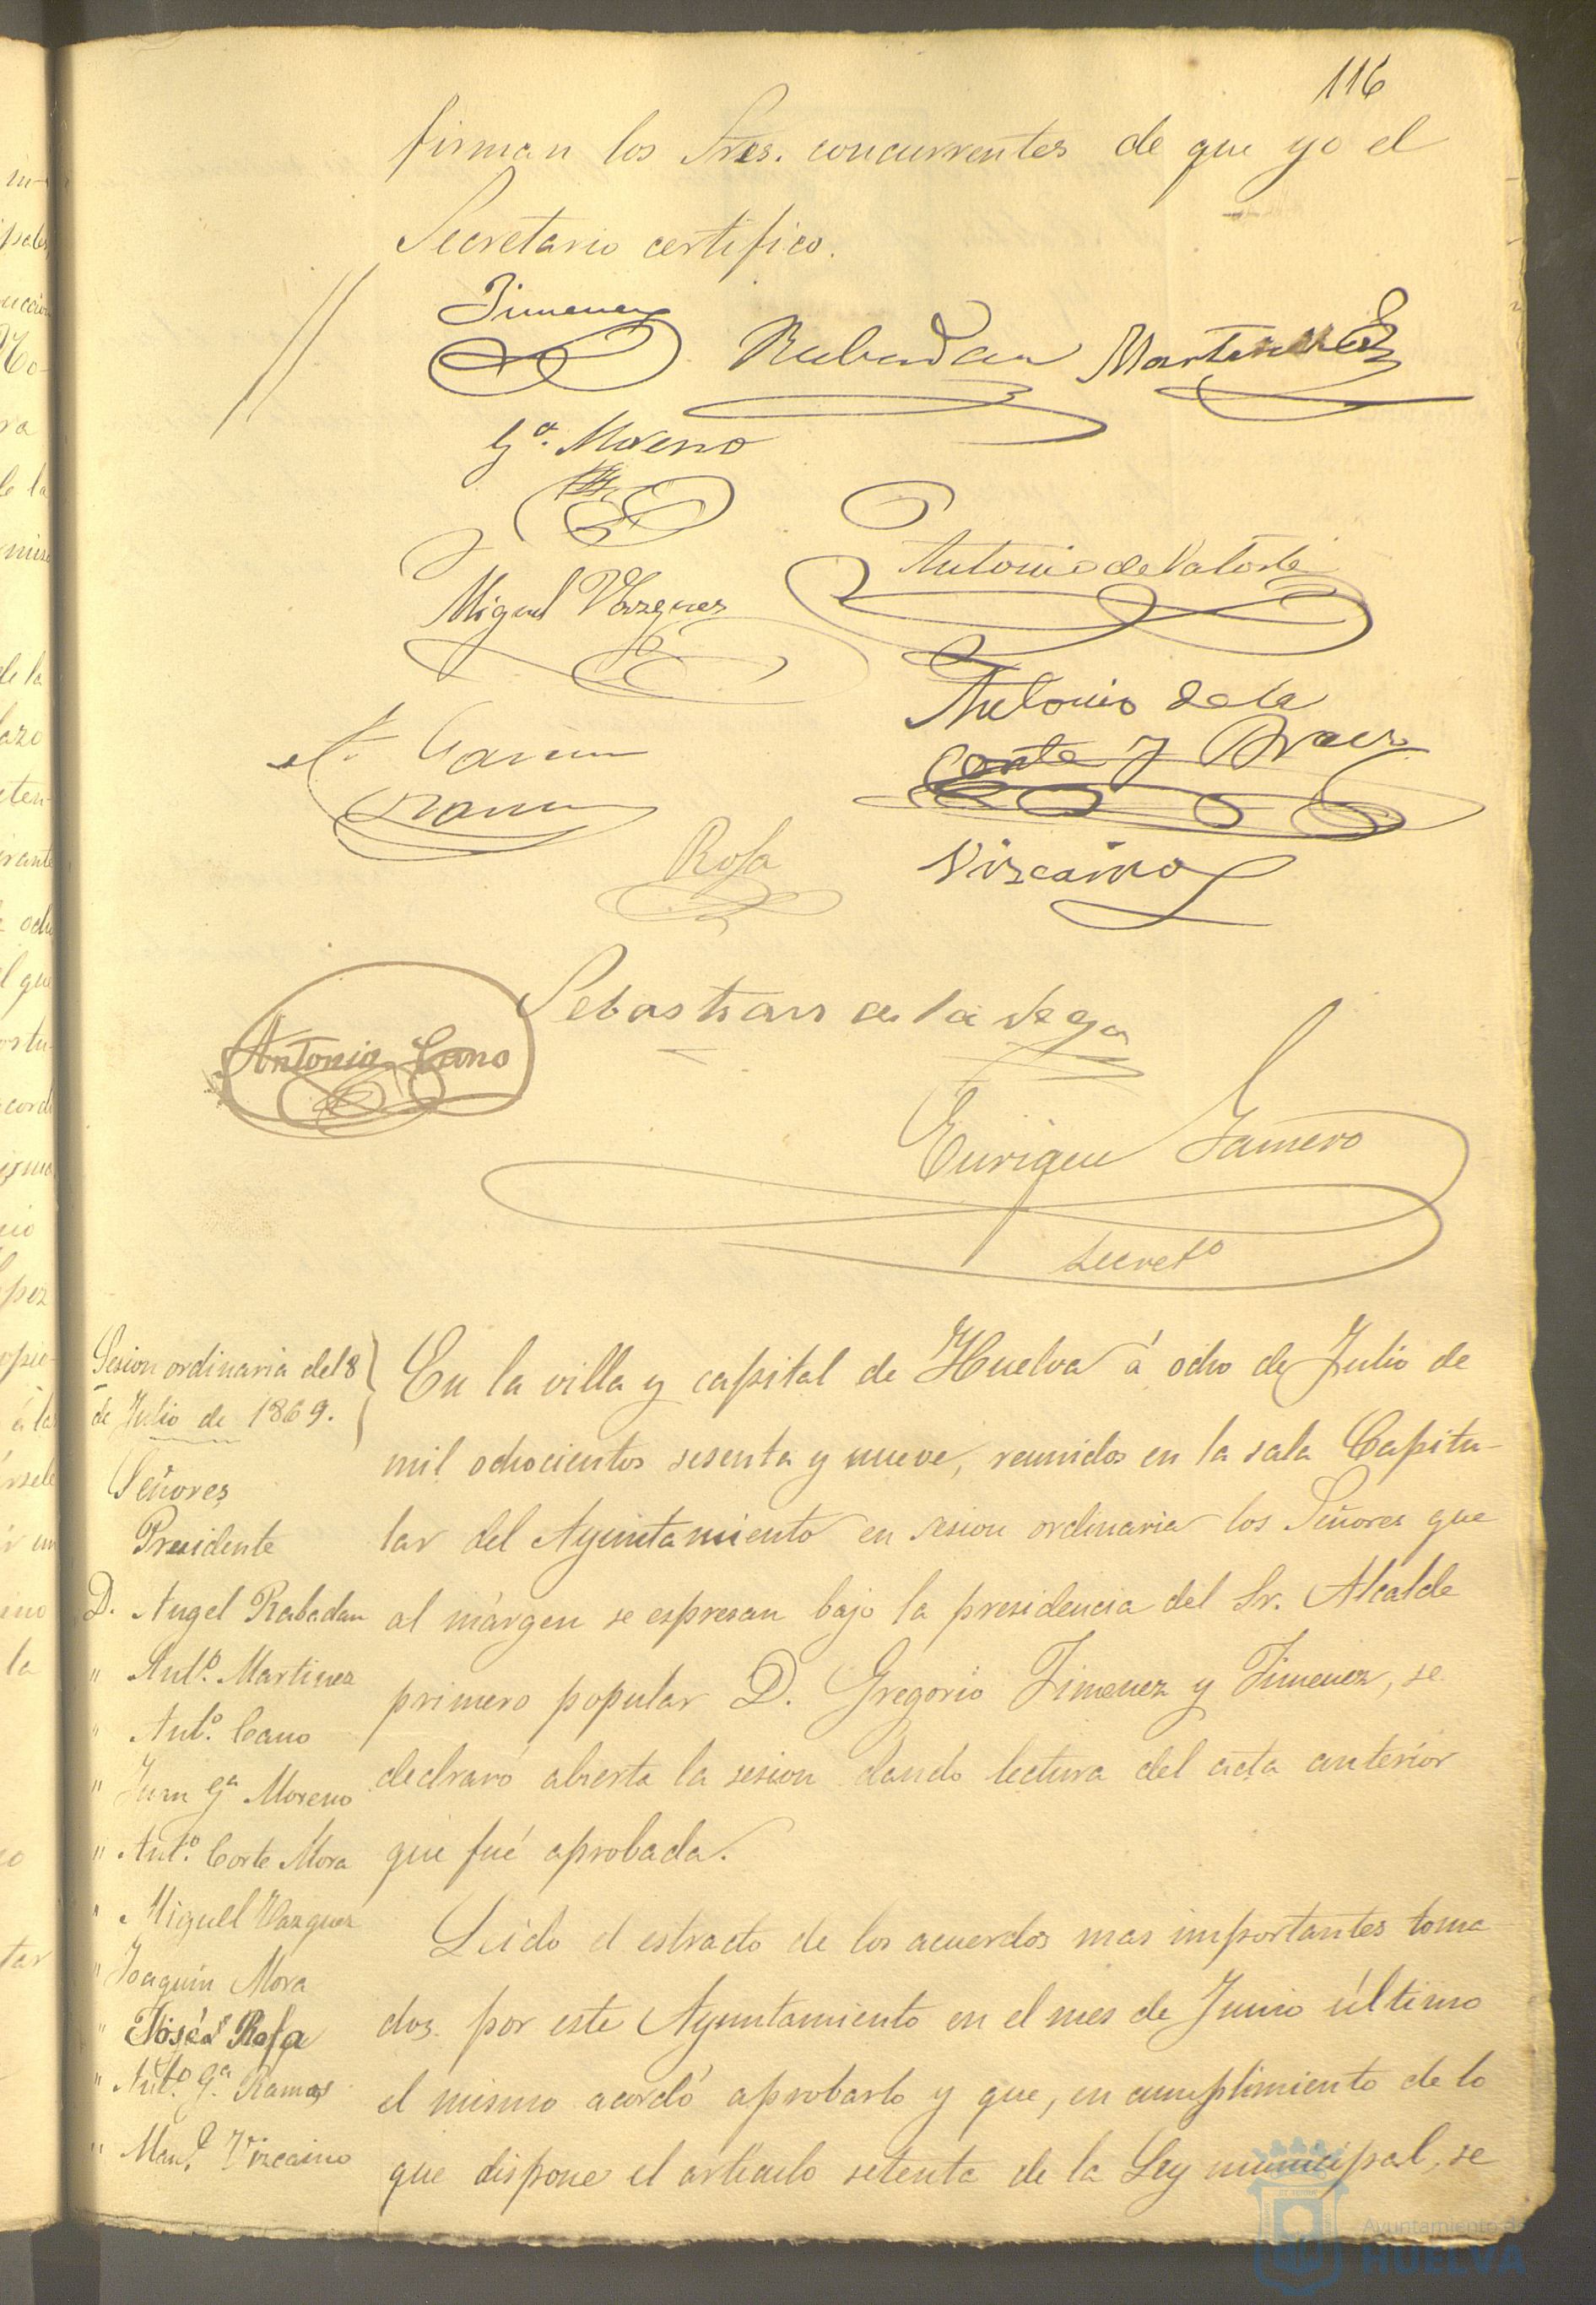 116
firman los Sres. concurrentes de que yo el
Secretario certifico.
Jimenez
Rabadan
Martinez
Gª. Moreno
Antonio de la Torre
Miguel Vazquez
Antonio de la
Corte y Bravo
A. Garcia
Ramos
Rosa
Vizcaino
Sebastian de la Vega
Antonio Cano
Enrique
Secretº
Sesion ordinaria del 8
de Julio de 1869.
Señores
Presidente
D. Angel Rabadan
" Antº. Martinez
" Antº. Cano
" Juan Gª Moreno
" Antº. Corte Mora
" Miguel Vazquez
" Joaquin Mora
" José Rosa
" Antº. Gª Ramos
" Manl. Vizcaino
En la villa y capital de Huelva á ocho de Julio de
mil ochocientos sesenta y nueve, reunidos en la sala Capitu-
lar del Ayuntamiento en sesion ordinaria los Señores que
al márgen se espresan bajo la presidencia del Sr. Alcalde
primero popular D. Gregorio Jimenez y Jimenez, se
declraró abierta la sesion dando lectura del acta anterior
que fué aprobada.
Leido el estracto de los acuerdos mas importantes toma
dos por este Ayuntamiento en el mes de Junio último
el mismo acordó aprobarlo y que, en cumplimiento de lo
que dispone el artículo setenta de la Ley municipal, se
Ayuntamiento de
HUELVA